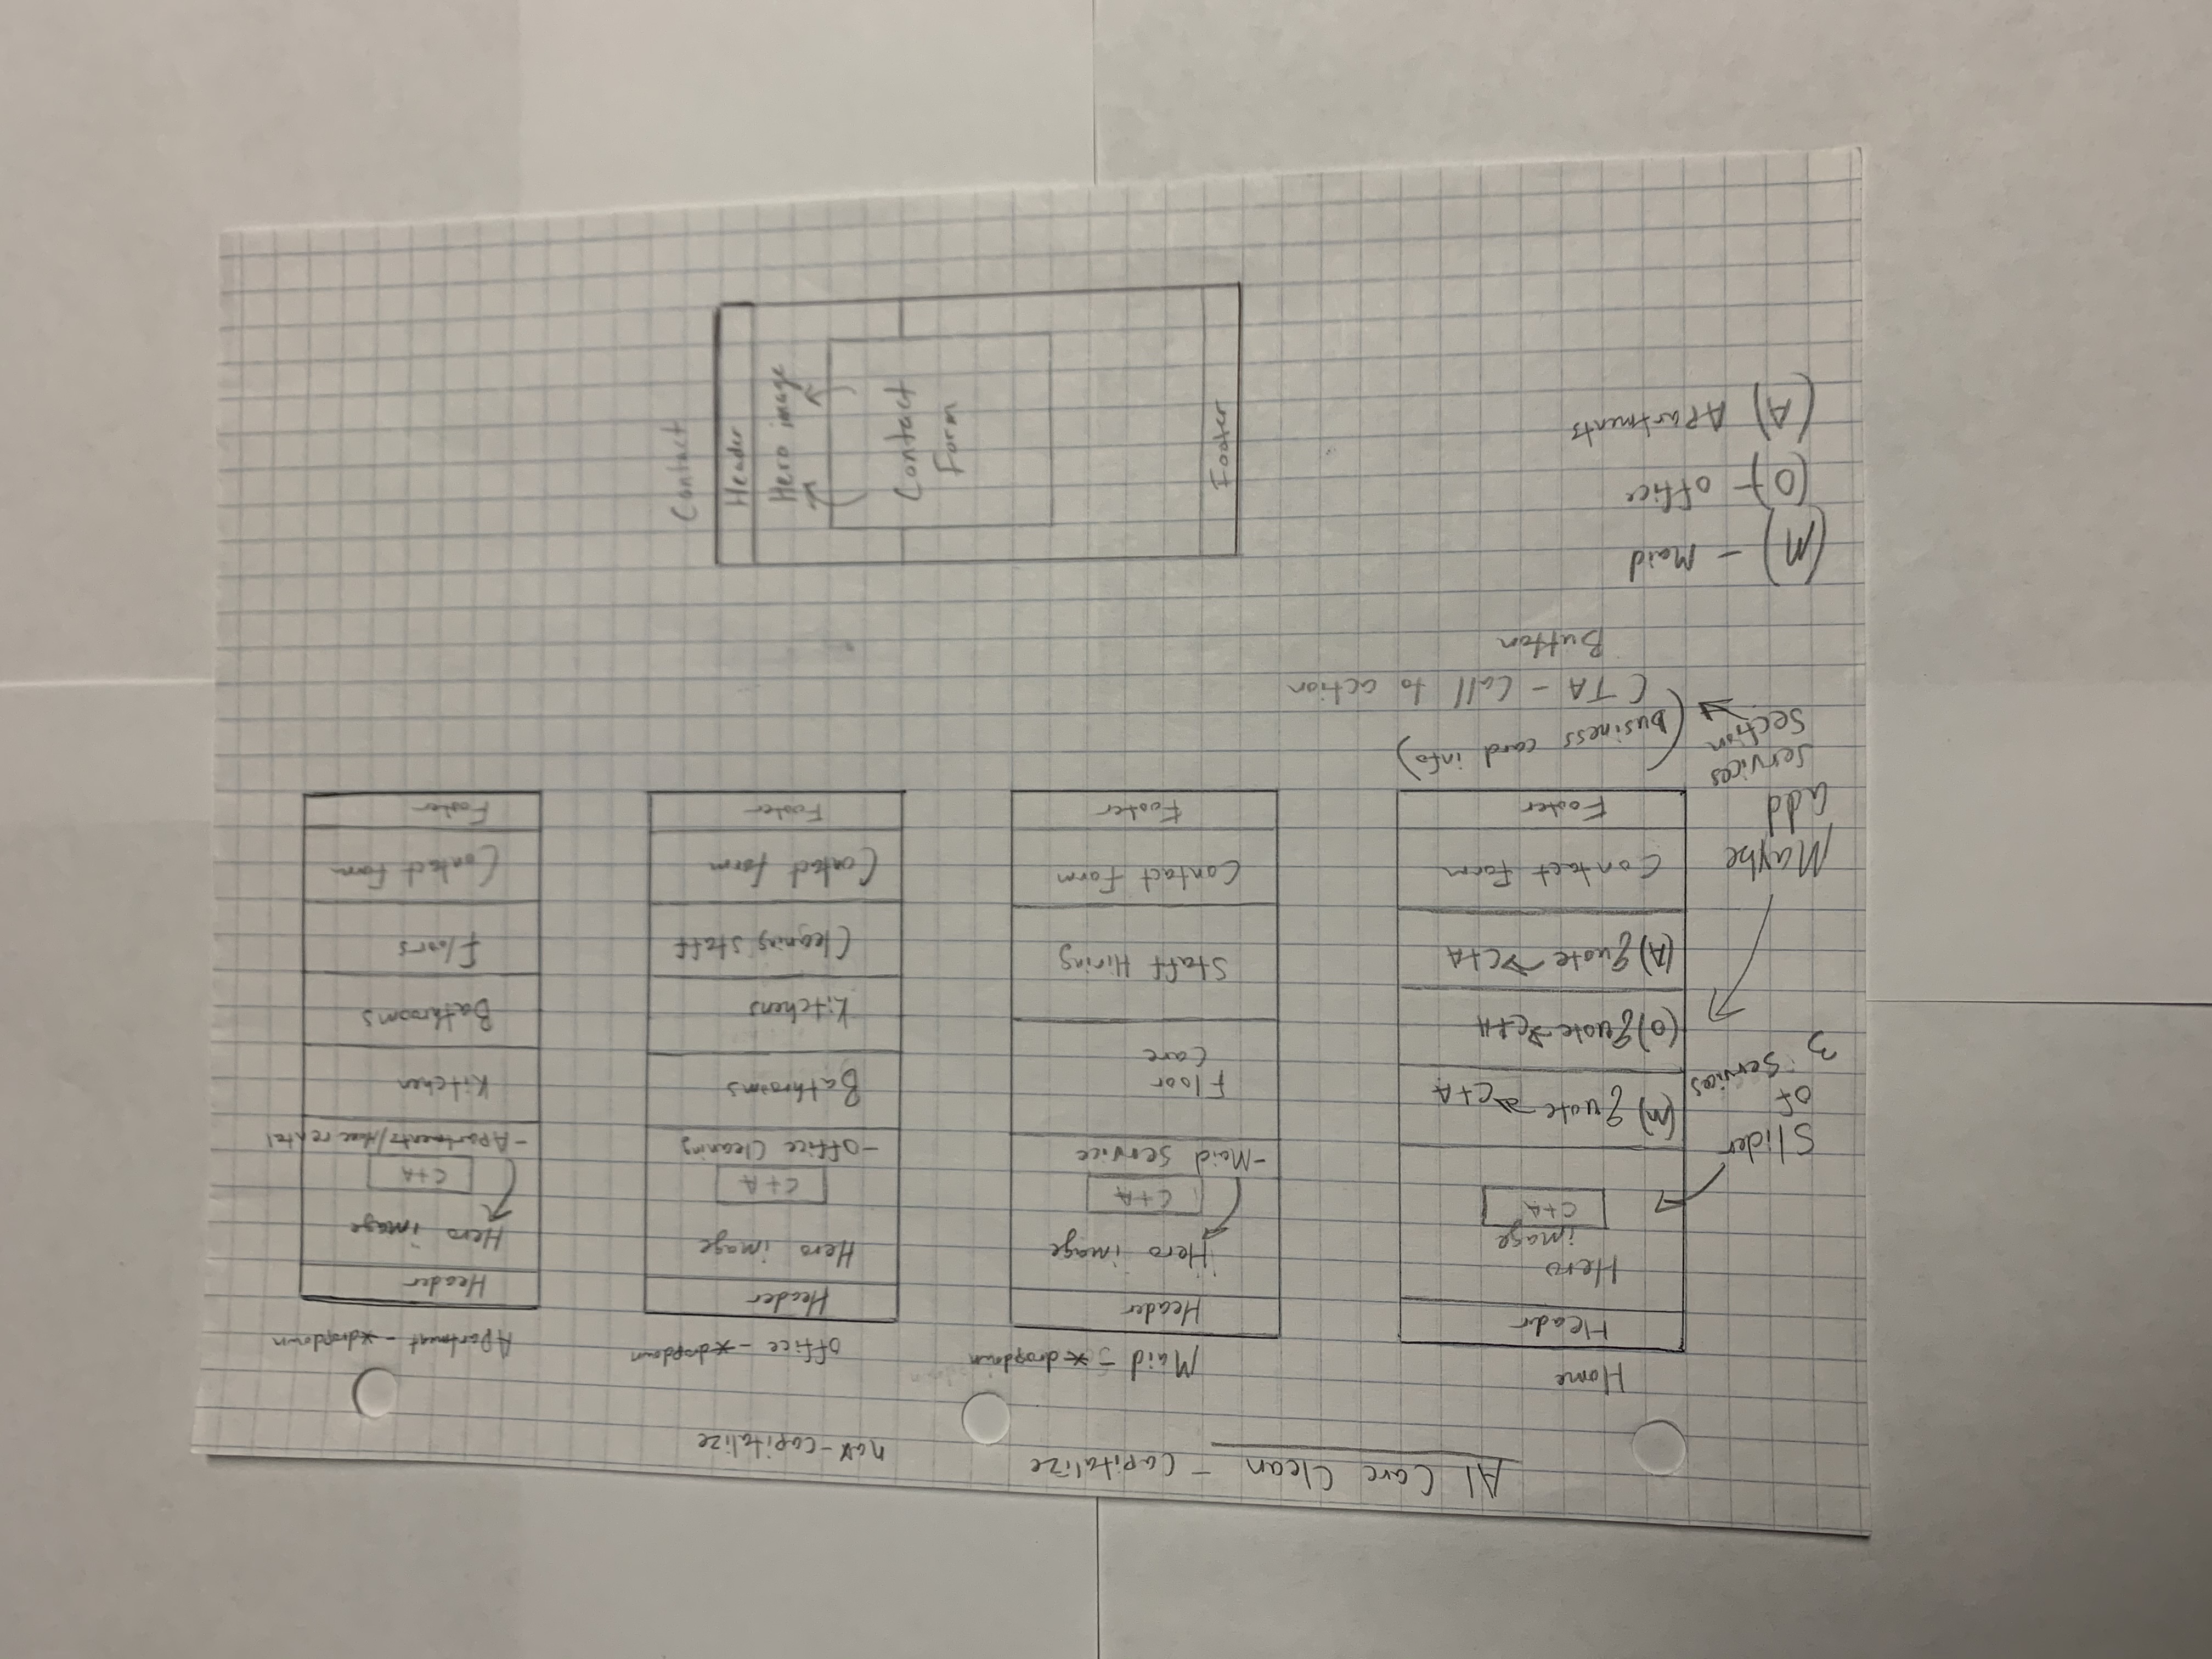 Al Care Clean - Capitalize
nav-capitalize
Home
Header
Hero
image
CTA
(M) quote → CTA
(O) quote → CTA
(A) quote → CTA
Contact Form
Footer
Slider
of
3 services
Maybe
add
services
section
(business card info)
CTA - Call to action
Button
(M) - Maid
(O) - office
(A) Apartments
Maid - *dropdown
Header
Hero image
CTA
- Maid service
Floor
Care
Staff Hiring
Contact Form
Footer
office - *dropdown
Header
Hero image
CTA
- office Cleaning
Bathrooms
Kitchens
Cleaning staff
Contact form
Footer
Apartment - *dropdown
Header
Hero image
CTA
- Apartments/ rental
Kitchen
Bathrooms
Floors
Contact form
Footer
Contact
Header
Hero image
Contact
Form
Footer